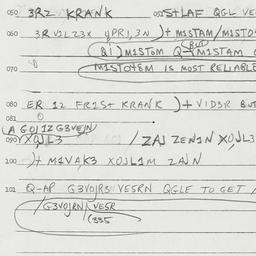 050 3RZ KRANK 05 STLAF QGL VE
060 3R VJLZ3X YPRI,3N )+ M1STAM/M1STO
(&) M1STOM Q- (BUT M1STAM
070 M1STO48M IS MOST RELIABLE
080 ER 12 FR1ST KRANK )+ V1D3R BUT
081 0
A GOJ1Z G3VEJN
090 XOJL3 / ZAJ ZEN1N XOJL3
100 )+ M1VAK3 XOJL1M ZAJN
101 Q-AP G3VOJRS VESRN QGLE TO GET
/G3VOJRN/VESR
(335